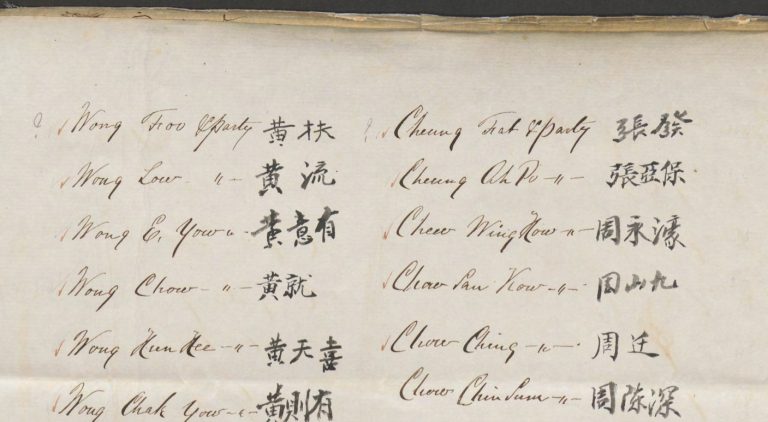 Wong Foo & party 黃扶
Wong Low - " - 黃流
Wong E. Yow " - 黃意有
Wong Chow - " - 黃就
Wong Hun Hee - " - 黃天喜
Wong Chak Yow - " - 黃則有
Cheung Fat & party 張發
Cheung Ah Po - " - 張亞保
Chew Wing How - " - 周永濠
Chow San Kow - " - 周山九
Chow Ching - " - 周迁
Chow Chin Sum - " - 周陈深